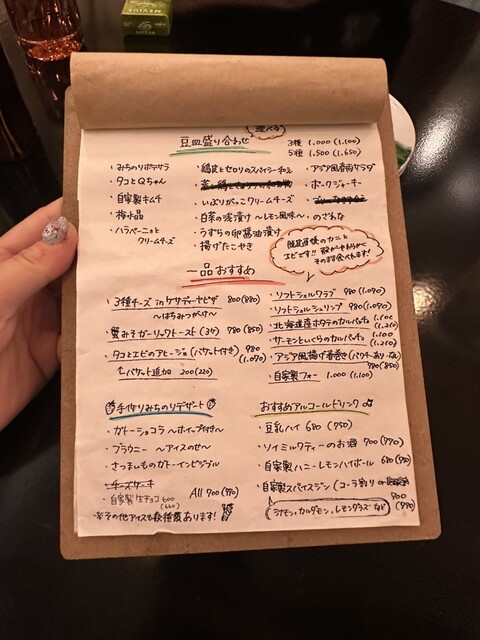 MEVIUS
豆皿盛り合わせ
選べる
3種 1,000(1,100)
5種 1,500(1,650)
・みちのりポテサラ
・タコとQちゃん
・自家製キムチ
・梅水晶
・ハラペーニョとクリームチーズ
・鶏皮とセロリのスパイシー和え
・いぶりがっこクリームチーズ
・白菜の浅漬け 〜レモン風味〜
・うずらの卵醤油漬け
・揚げたこやき
・アジア風春雨サラダ
・ポークジャーキー
・のざわな
脱皮直後のカニと
エビです!! 殻がやわらかく
そのまま食べれます!
一品おすすめ
・3種チーズ in ケサデーヤピザ 800(880)
〜はちみつがけ〜
・蟹みそガーリックトースト(3ケ) 780(850)
・タコとエビのアヒージョ(バケット付き) 980
(1,070)
バケット追加 200(220)
・ソフトシェルクラブ 980(1,090)
・ソフトシェルシュリンプ 980(1,090)
・北海道産ホタテのカルパッチョ 1,100
(1,210)
・サーモンといくらのカルパッチョ 1,100
(1,210)
・アジア風揚げ春巻き(パクチーあり・なし)
780(850)
・自家製フォー 1,000(1,100)
手作りみちのりデザート
・ガトーショコラ 〜ホイップ付き〜
・ブラウニー 〜アイスのせ〜
・さつまいものガトーインビジブル
・チーズケーキ
・自家製生チョコ 600
(660)
All 700(770)
※その他アイスも数種類あります!
おすすめアルコールドリンク
・豆乳ハイ 680(750)
・ソイミルクティーのお酒 700(770)
・自家製ハニーレモンハイボール 680(750)
・自家製スパイスジン(コーラ割り or
700
(770)
シナモン、カルダモン、レモングラスなど